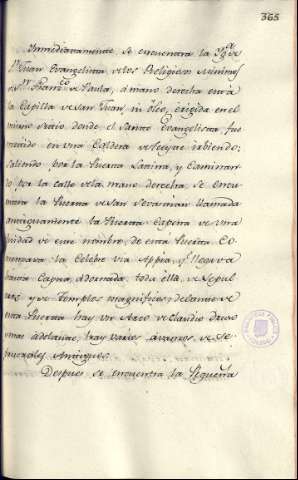 365
Immediatamente se encuentra la Yg.ª de
S.n Juan Evangelista de los Religiosos Minimos
de S.n Fran.co de Paula, á mano derecha está
la Capilla de San Juan in óleo, erigida en el
mismo sitio donde el Santo Evangelista fue
metido en una Caldera de Azeyte irbiendo:
saliendo por la Puerta Latina, y Caminan-
do por la Calle de la mano derecha, se encu-
entra la Puerta de San Sevastian llamada
antiguamente la Puerta Capena de una
Ciudad de este nombre, de esta Puerta Co-
menzava la Celebre via Appia, que llegava
hasta Capua, adornada toda ella, de Sepul-
cros y de Templos magnificos: delante de
esta Puerta hay un Arco de Claudio Druso
mas adelante, hay varios avanzos de Se-
pulcros Antiguos.
Despues se encuentra la Pequeña